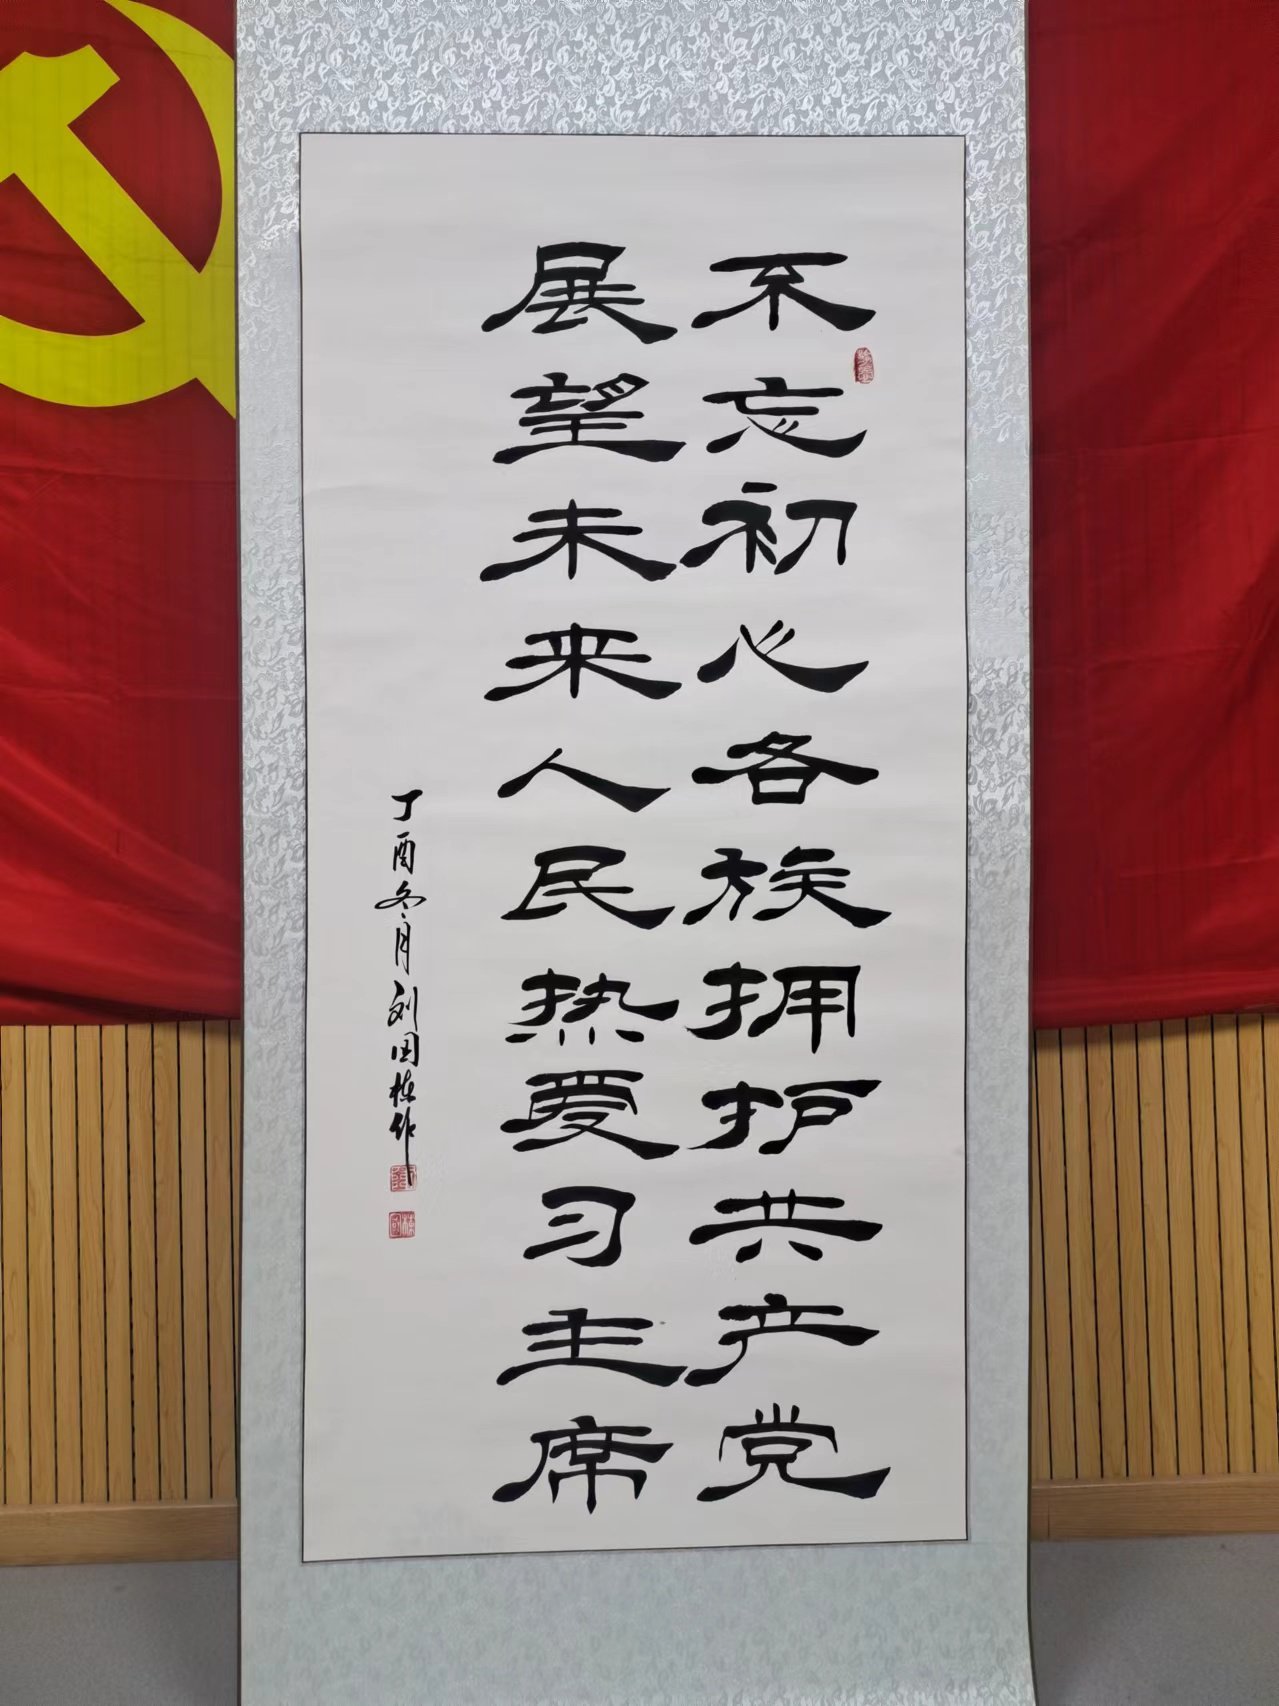 不忘初心各族拥护共产党
展望未来人民热爱习主席
丁酉冬月刘国栋作